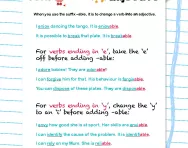 When you use the suffix -able, it is to change a verb into an adjective.
I enjoy dancing the tango. It is enjoyable.
It is possible to break that plate. It is breakable.
For verbs ending in 'e', take the 'e'
off before adding -able:
I adore babies! They are adorable!
I can forgive him for that. His behaviour is forgivable.
You can dispose of these plates. They are disposable.
For verbs ending in 'y', change the 'y'
to an 'i' before adding -able:
I can identify the cause of the problem. It is identifiable.
I can rely on my Mum. She is reliable.